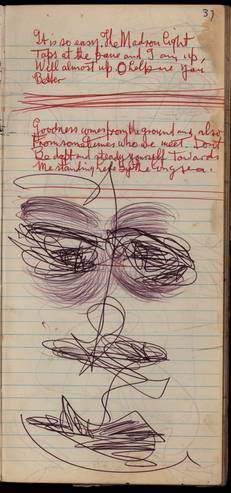 37
It is so easy. The Madson Light
Taps at the pane and I am up,
Well almost up O help me you
Better
Goodness comes from the ground and, also
From sometimes who we meet. Don't
Be dopt and steady yourself towards
Me standing here by the long sea.